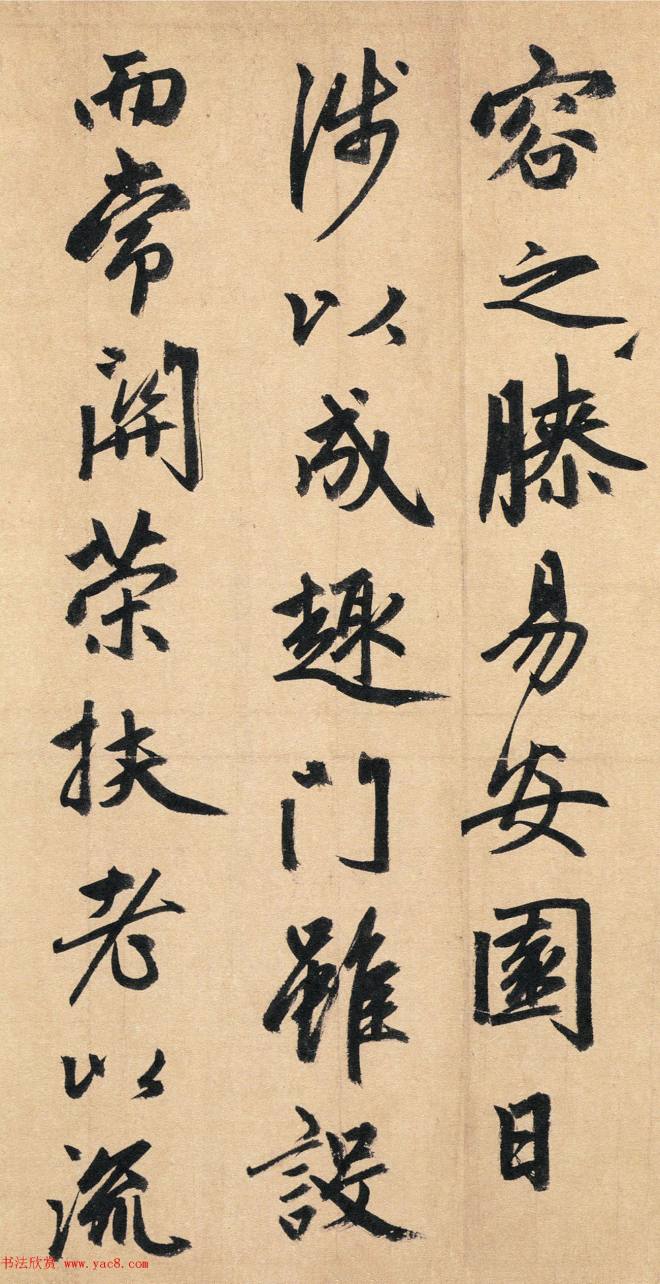 容之膝易安園日
涉以成趣門雖設
而常關策扶老以流
书法欣赏 www.yac8.com